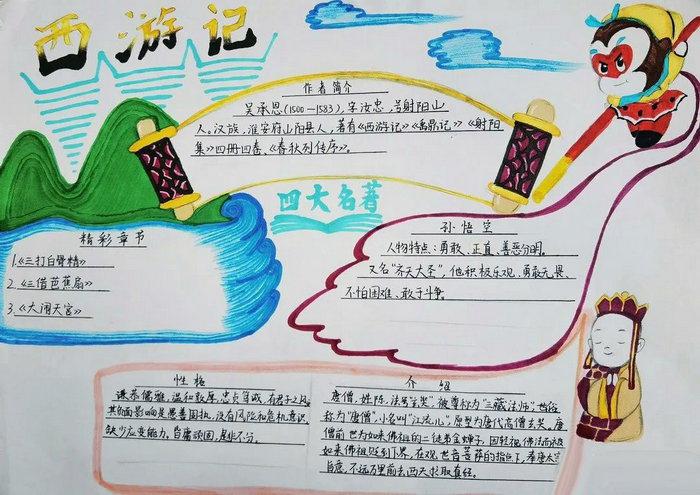 西游记
作者简介
吴承恩(1500—1583),字汝忠,号射阳山
人。汉族,淮安府山阳县人,著有《西游记》《禹鼎记》《射阳
集》四册四卷、《春秋列传序》。
四大名著
精彩章节
1.《三打白骨精》
2.《三借芭蕉扇》
3.《大闹天宫》
孙悟空
人物特点:勇敢、正直、善恶分明。
又名“齐天大圣”,他积极乐观、勇敢无畏、
不怕困难、敢于斗争。
性格
谦恭儒雅,温和敦厚,忠贞诚,有君子之风。
其负面影响是愚善固执,没有风险和危机意识,
缺少应变能力,盲庸顽固,是非不分。
介绍
唐僧,姓陈,法号“玄奘”被尊称为“三藏法师”世俗
称为“唐僧”,小名叫“江流儿”,原型为唐代高僧玄奘。唐
僧前世为如来佛祖的二徒弟金蝉子,因轻视佛法而被
如来佛祖贬到下界,在观世音菩萨的指点下,奉唐太宗
旨意,不远万里前去西天求取真经。